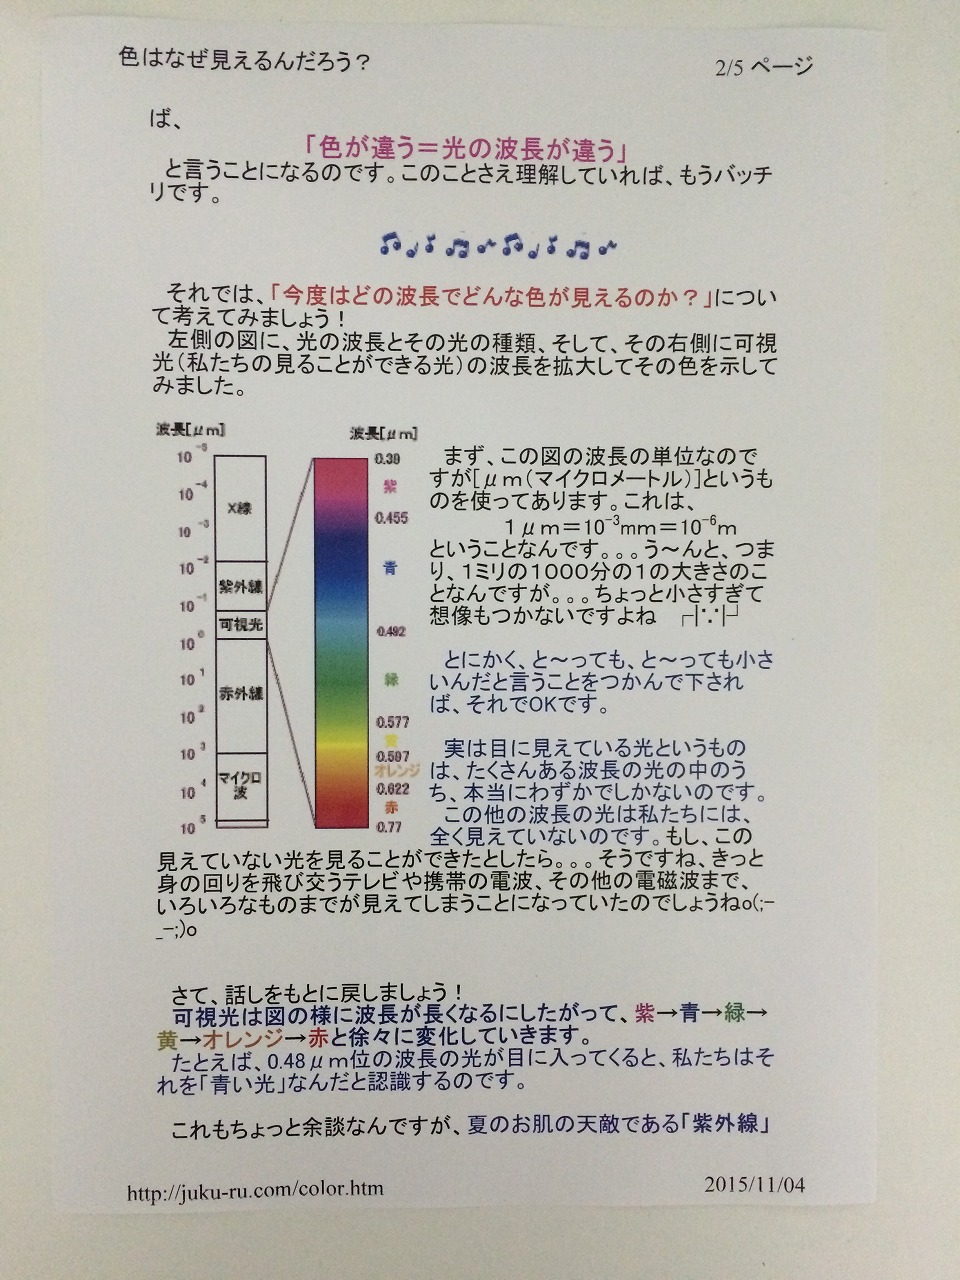 色はなぜ見えるんだろう？
2/5 ページ
ば、
「色が違う＝光の波長が違う」
と言うことになるのです。このことさえ理解していれば、もうバッチ
リです。
それでは、「今度はどの波長でどんな色が見えるのか？」につい
て考えてみましょう！
左側の図に、光の波長とその光の種類、そして、その右側に可視
光（私たちの見ることができる光）の波長を拡大してその色を示して
みました。
波長[μm]
10⁻⁵
10⁻⁴
10⁻³
10⁻²
10⁻¹
10⁰
10¹
10²
10³
10⁴
10⁵
X線
紫外線
可視光
赤外線
マイクロ
波
波長[μm]
0.39
紫
0.455
青
0.492
緑
0.577
黄
0.597
オレンジ
0.622
赤
0.77
まず、この図の波長の単位なので
すが[μm（マイクロメートル）]というも
のを使ってあります。これは、
1μm＝10⁻³mm＝10⁻⁶m
ということなんです。。。う～んと、つま
り、1ミリの1000分の1の大きさのこ
となんですが。。。ちょっと小さすぎて
想像もつかないですよね ┌|∵|┘
とにかく、と～っても、と～っても小さ
いんだと言うことをつかんで下され
ば、それでOKです。
実は目に見えている光というもの
は、たくさんある波長の光の中のう
ち、本当にわずかでしかないのです。
この他の波長の光は私たちには、
全く見えていないのです。もし、この
見えていない光を見ることができたとしたら。。。そうですね、きっと
身の回りを飛び交うテレビや携帯の電波、その他の電磁波まで、
いろいろなものまでが見えてしまうことになっていたのでしょうねo(;-
_-;)o
さて、話しをもとに戻しましょう！
可視光は図の様に波長が長くなるにしたがって、紫→青→緑→
黄→オレンジ→赤と徐々に変化していきます。
たとえば、0.48μm位の波長の光が目に入ってくると、私たちはそ
れを「青い光」なんだと認識するのです。
これもちょっと余談なんですが、夏のお肌の天敵である「紫外線」
http://juku-ru.com/color.htm
2015/11/04